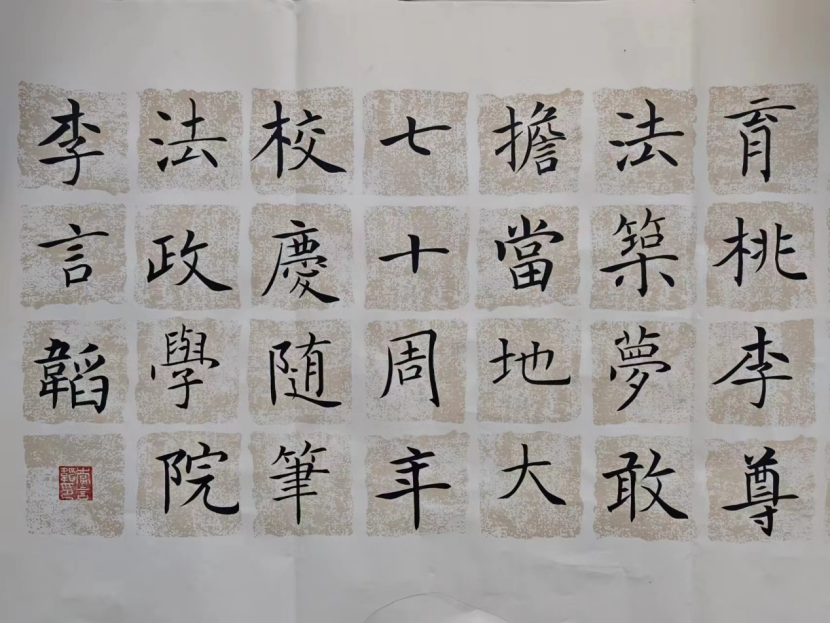 育桃李尊
法築夢敢
擔當地大
七十周年
校慶随筆
法政學院
李言韜